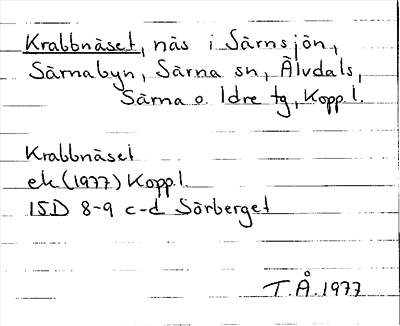 Krabbnäset, näs i Särnsjön,
Särnabyn, Särna sn, Älvdals,
Särna o. Idre tg, Kopp.l.
Krabbnäset
ek (1977) Kopp.l.
15D 8-9 c-d Sörberget
T.Å.1977